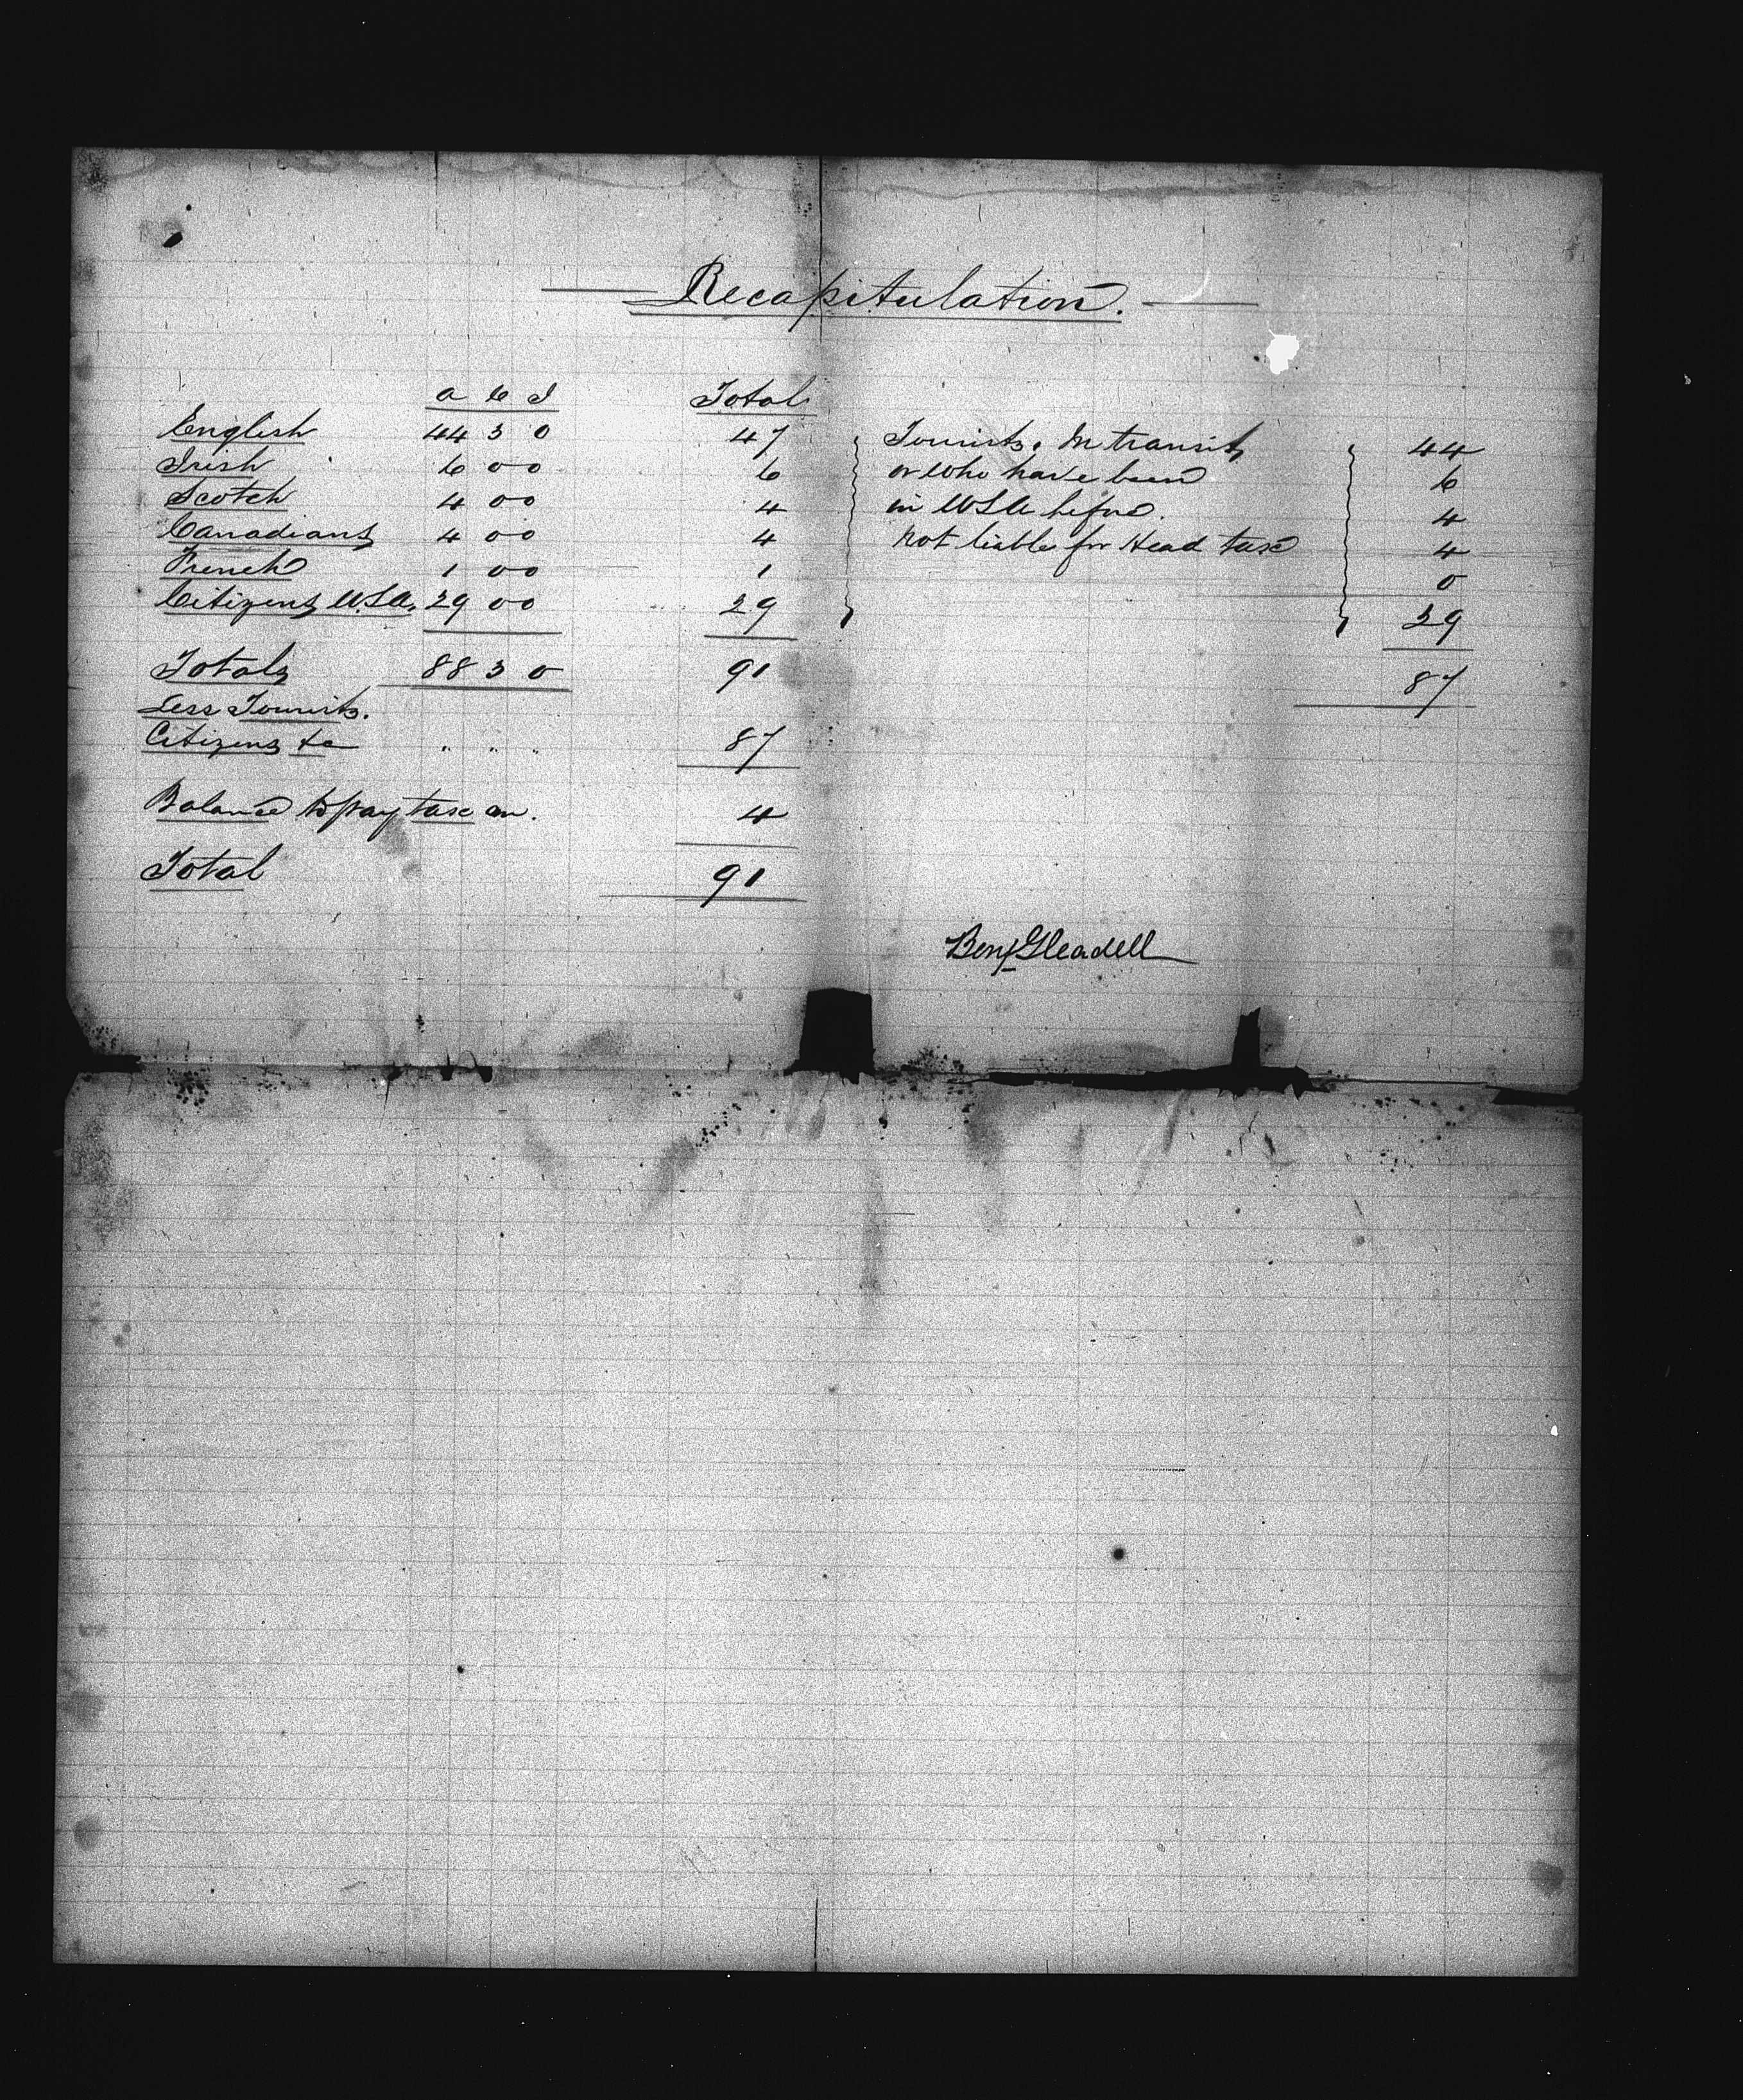 Recapitulation.
a c I Total
English 44 3 0 47 Tourists. In transit 44
Irish 6 0 0 6 or who have been 6
Scotch 4 0 0 4 in USA before. 4
Canadians 4 0 0 4 not liable for Head tax 4
French 1 0 0 1 0
Citizens U.S.A. 29 0 0 29 29
Totals 88 3 0 91 87
Less Tourists.
Citizens &c " " " 87
Balance to pay tax on. 4
Total 91
Benj Gleadell